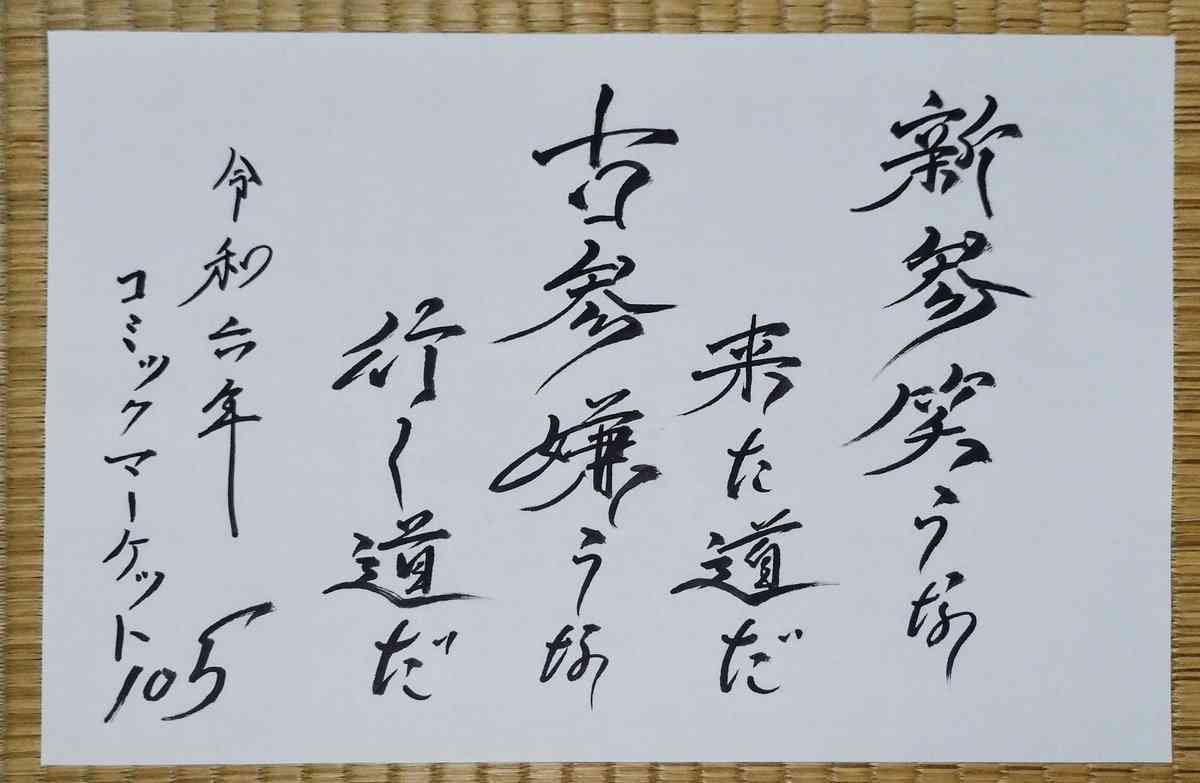 新参笑うな
来た道だ
古参嫌うな
行く道だ
令和六年
コミックマーケット105